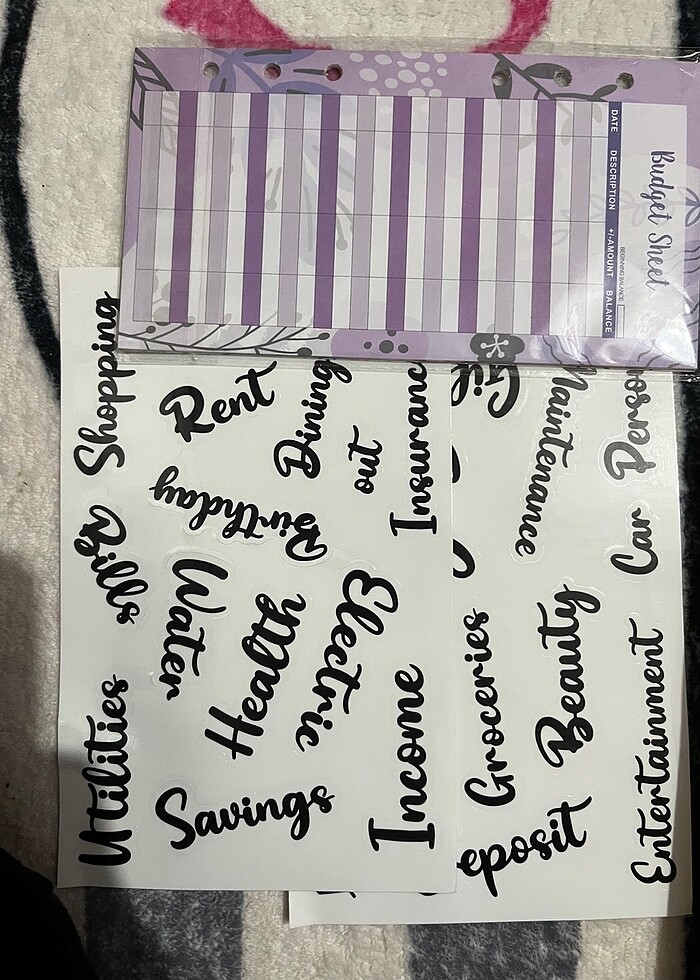 Budget Sheet
BEGINNING BALANCE
DATE DESCRIPTION +/-AMOUNT BALANCE
Shopping
Rent
Dining
out
Insurance
Birthday
Bills
Water
Health
Electric
Utilities
Savings
Income
Maintenance
Car
Groceries
Beauty
Entertainment
eposit